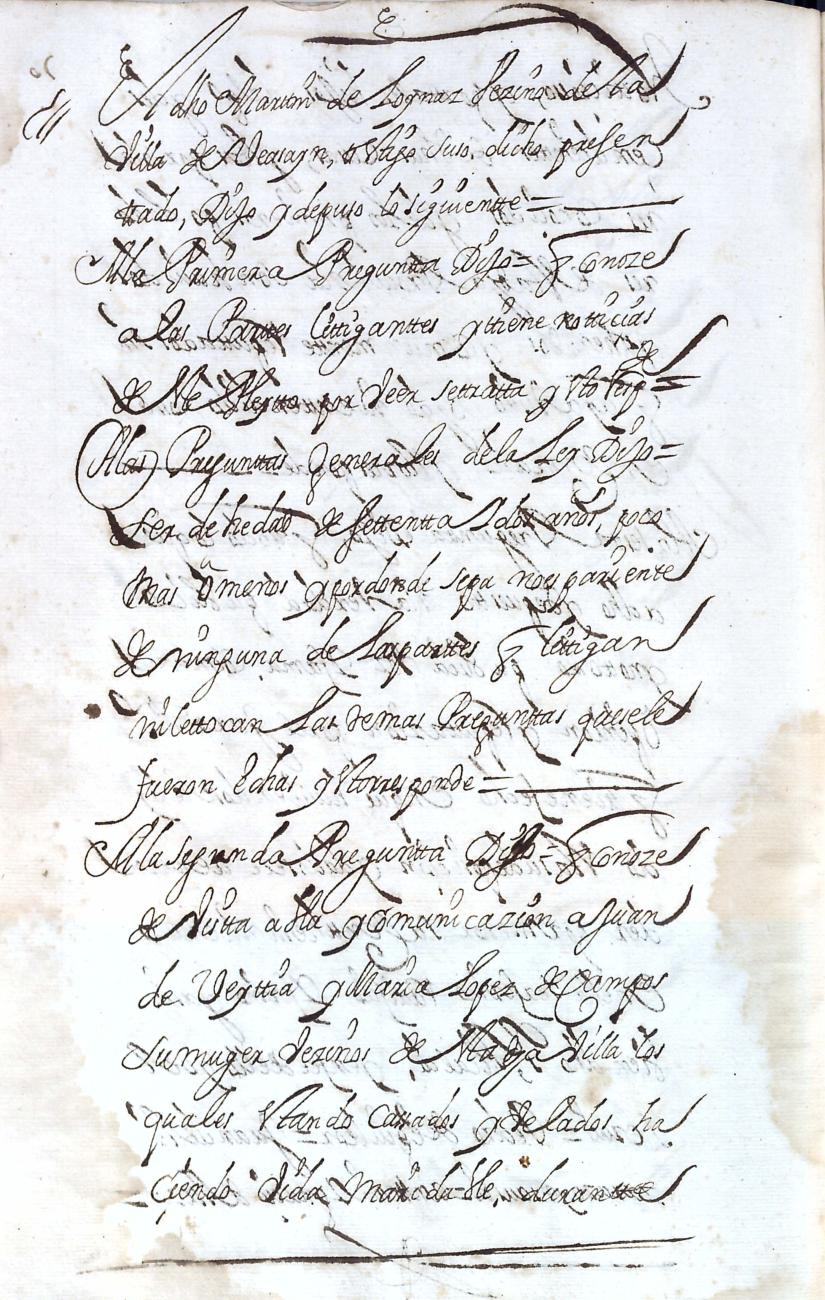 El dho Martin de Loynaz Vezino de la
Villa de Veasayn, testigo suso dicho presen
ttado, Dijo y depuso lo siguientte =
A la Primera Pregunta Dijo = q Conoze
a las Partes litiganttes y tiene notticias
de este Pleytto por veer se tratta y esto resp de =
A las Preguntas generales de la Ley Dijo =
ser de hedad de settentta y dos años, poco
mas ô menos y por donde sepa no es pariente
de ninguna de las parttes q litigan
ni le ttocan las demas Preguntas que se le
fueron echas y esto responde =
A la segunda Pregunta Dijo = q Conoze
de vista abla y Comunicazion a Juan
de Veyttia y Maria Lopez de Campos
su muger vezinos de esta dha Villa los
quales estando Casados y Velados ha
ciendo Vida Maridable, durantte